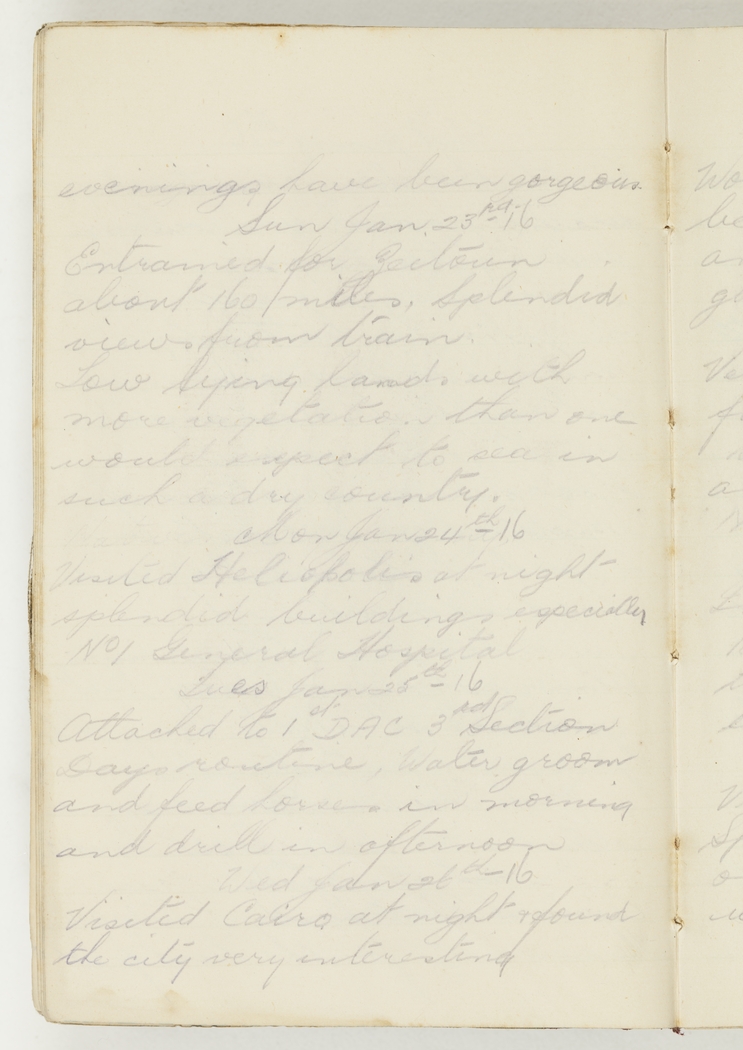 evenings have been gorgeous.
Sun Jan. 23rd-16
Entrained for Zeitoun
about 160 miles. Splendid
views from train.
Low lying lands with
more vegetation than one
would expect to see in
such a dry country.
Mon Jan 24th-16
Visited Heliopolis at night
splendid buildings especially
No1 General Hospital
Tues Jan 25th-16
Attached to 1st DAC 3rd Section
Days routine, Water groom
and feed horses in morning
and drill in afternoon
Wed Jan 26th-16
Visited Cairo at night & found
the city very interesting
Wo
be
an
Ve